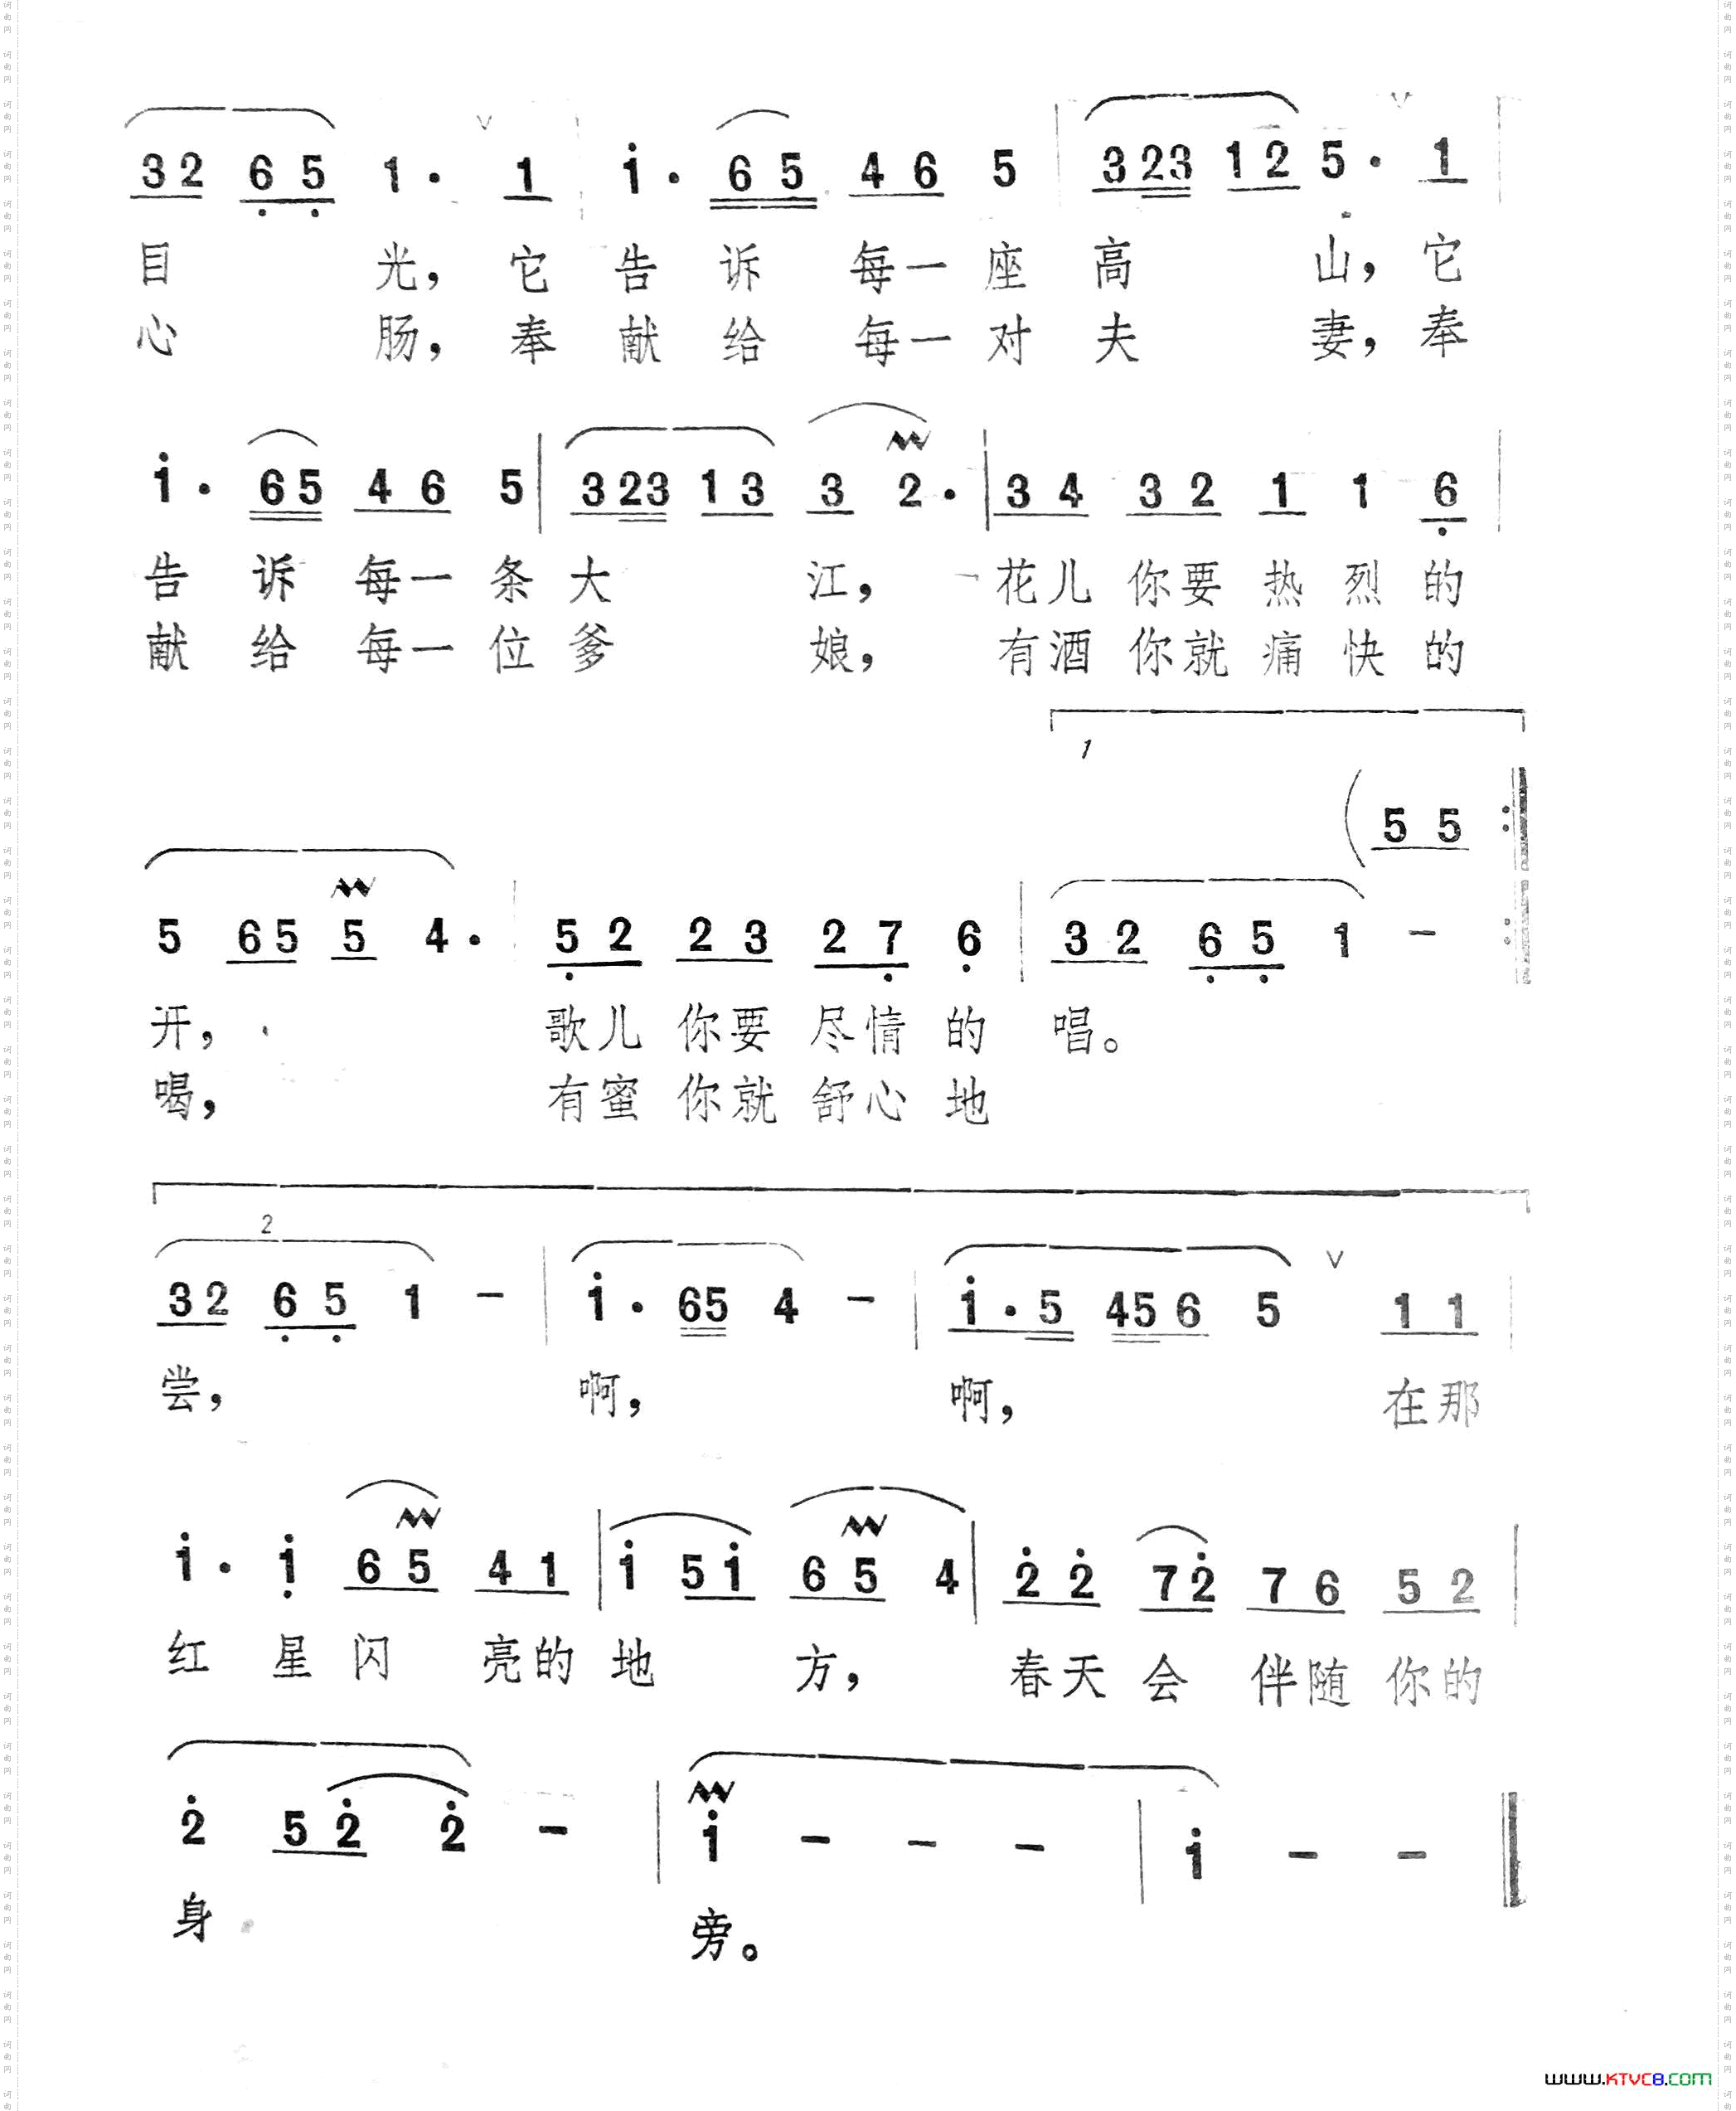 32 65 1· 1 1· 65 46 5 323 12 5· 1
目 光，它 告 诉 每一 座 高 山，它
心 肠，奉 献 给 每一 对 夫 妻，奉
1· 65 46 5 323 13 3 2· 34 32 1 1 6
告 诉 每一 条 大 江， 花儿 你要 热 烈 的
献 给 每一 位 爹 娘， 有酒 你就 痛 快 的
1
(55
5 65 5 4· 52 23 27 6 32 65 1 -
开， 歌儿 你要 尽情 的 唱。
喝， 有蜜 你就 舒心 地
2
32 65 1 - 1· 65 4 - 1·5 456 5 11
尝， 啊， 啊， 在那
1· 1 65 41 1 51 65 4 22 72 76 52
红 星 闪 亮的 地 方， 春天 会 伴随 你的
2 52 2 - 1 - - - 1 - -
身 旁。
www.KTVC8.COM